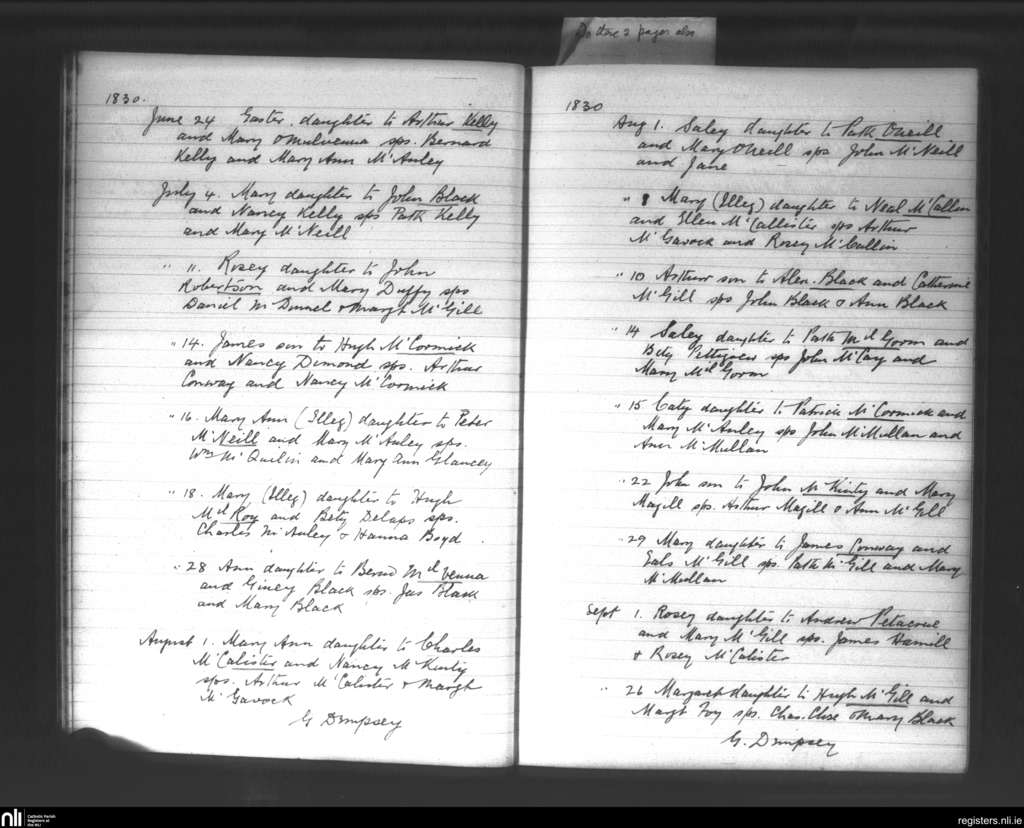 Do these 2 pages also
1830.
June 24 Easter daughter to Arthur Kelly
and Mary O'Mulvenna sps. Bernard
Kelly and Mary Ann McAuley
July 4. Mary daughter to John Black
and Nancy Kelly sps Patk Kelly
and Mary McNeill
" 11. Rosey daughter to John
Robertson and Mary Duffy sps
Daniel McDonnel & Margt McGill
" 14. James son to Hugh McCormick
and Nancy Dimond sps. Arthur
Conway and Nancy McCormick
" 16. Mary Ann (Illeg) daughter to Peter
McNeill and Mary McAuley sps.
Wm McQuilin and Mary Ann Glancey
" 18. Mary (Illeg) daughter to Hugh
McIlRoy and Bety Delaps sps.
Charles McAuley & Hanna Boyd
" 28 Ann daughter to Bernd McIlvenna
and Giney Black sps. Jas Black
and Mary Black
August 1. Mary Ann daughter to Charles
McCalister and Nancy McKinty
sps. Arthur McCalister & Margt
McGavock
G Dempsey
1830
Aug 1. Saley daughter to Patk Oneill
and Mary Oneill sps John McNeill
and Jane
" 8 Mary (Illeg) daughter to Neal McCallin
and Ellen McCallister sps Arthur
McGavock and Rosey McCallin
" 10 Arthur son to Alex. Black and Catherine
McGill sps John Black & Ann Black
" 14 Saley daughter to Patk McIlGorm and
Bety Pettigrew sps John McCay and
Mary McIlGorm
" 15 Caty daughter to Patrick McCormick and
Mary McAuley sps John McMullan and
Ann McMullan
" 22 John son to John McKinty and Mary
Magill sps. Arthur Magill & Ann McGill
" 29 Mary daughter to James Conway and
McGill sps. Patk McGill and Mary
McMullan
Sept 1. Rosey daughter to Andrew Petacrue
and Mary McGill sps. James Hamill
& Rosey McCalister
" 26 Margaret daughter to Hugh McGill and
Margt Foy sps. Chas. Close & Mary Black
G. Dempsey
nli
Catholic Parish
Registers at
the NLI
registers.nli.ie